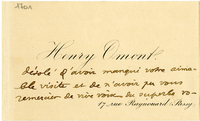 1701
Henry Omont
désolé d'avoir manqué votre aima-
ble visite et de n'avoir pu vous
remercier de vive voix du superbe vo-
17, rue Raynouard, Passy.